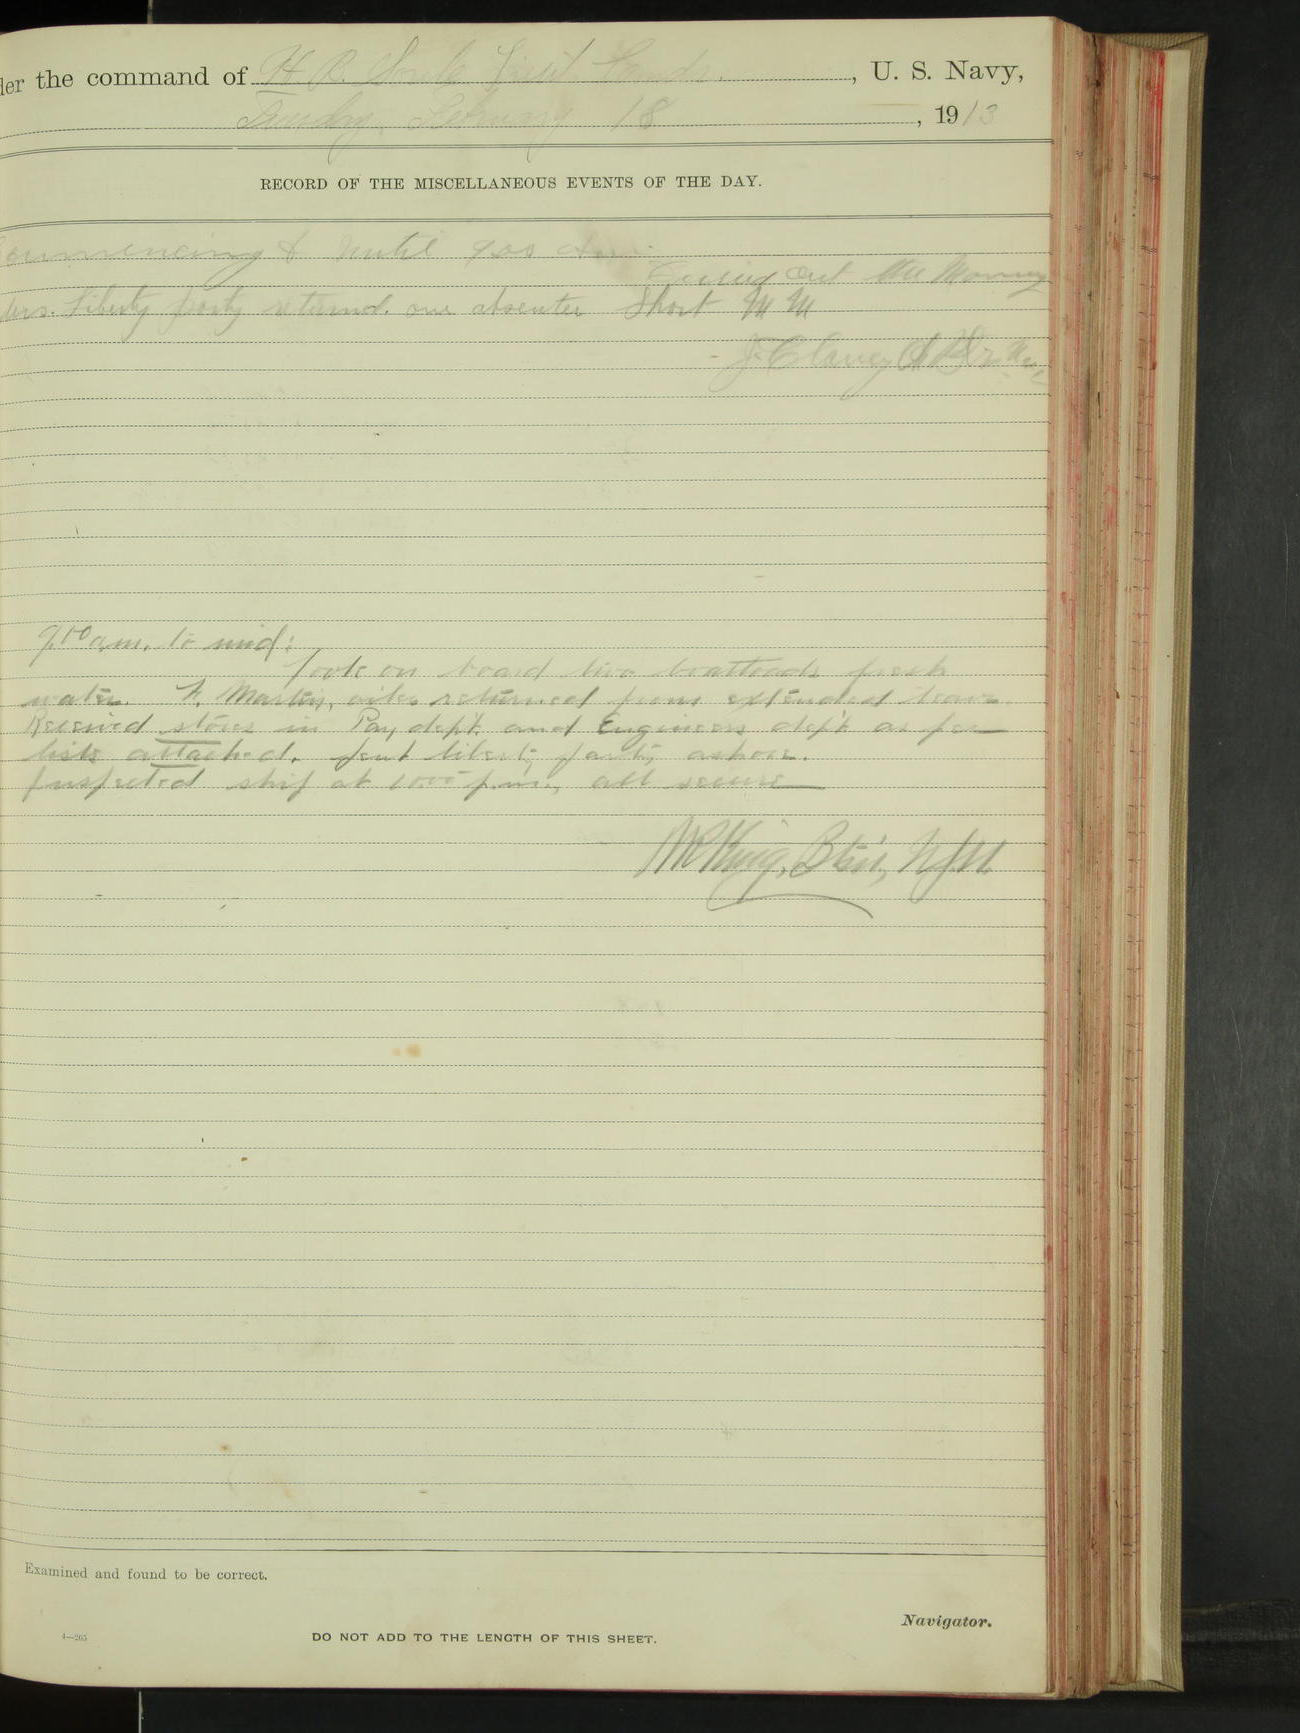 der the command of H. R. , U. S. Navy,
Tuesday, February 18, 1913
RECORD OF THE MISCELLANEOUS EVENTS OF THE DAY.
Commencing & Until 9 00 am.
Out the Morning
Liberty party returned. one absentee Short M M
J. Clancy
9.00 a.m. to mid:
Took on board two boatloads fresh
water. F. Martin, oiler returned from extended leave.
Received stores in Pay dept. and Engineers dept. as per
lists attached. Sent liberty party ashore.
Inspected ship at 10.00 p.m., all secure
King, N.J.N.
Examined and found to be correct.
Navigator.
4—265
DO NOT ADD TO THE LENGTH OF THIS SHEET.